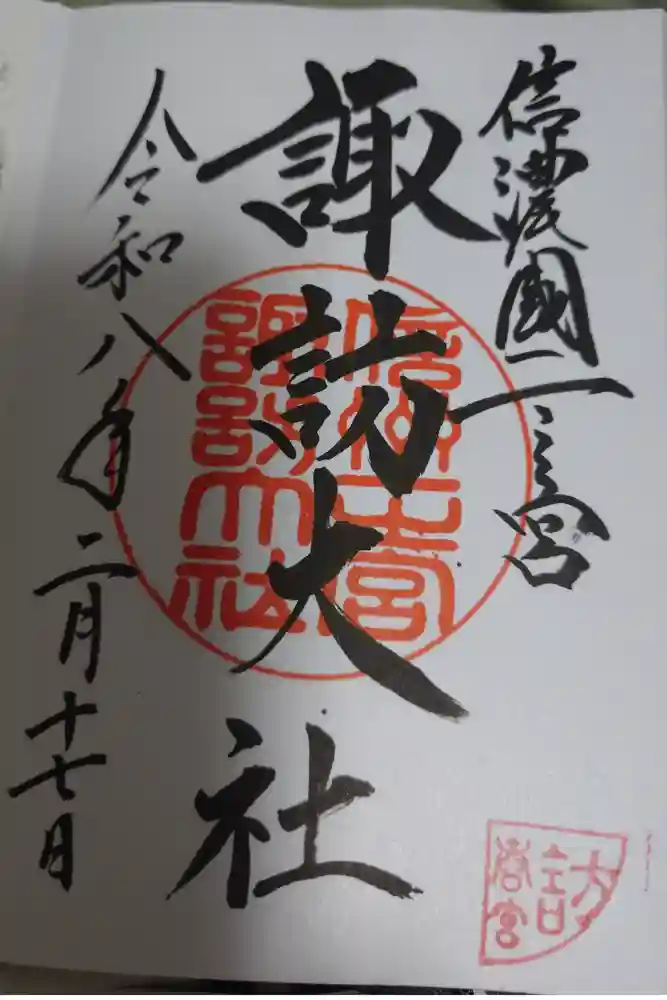 信濃國一之宮
諏訪大社
令和八年二月十七日
信州一宮
諏訪大社
訪
春宮